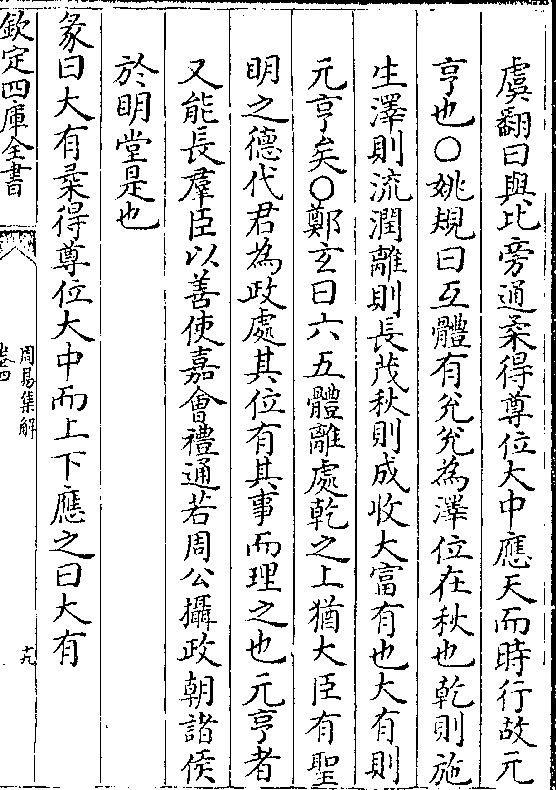 虞翻曰與比旁通柔得尊位大中應天而時行故元
亨也○姚規曰互體有兊兊為澤位在秋也乾則施
生澤則流潤離則長茂秋則成收大富有也大有則
元亨矣○鄭玄曰六五體離處乾之上猶大臣有聖
明之德代君為政處其位有其事而理之也元亨者
又能長羣臣以善使嘉會禮通若周公攝政朝諸侯
於明堂是也
彖曰大有柔得尊位大中而上下應之曰大有
欽定四庫全書
周易集解
卷四
十九